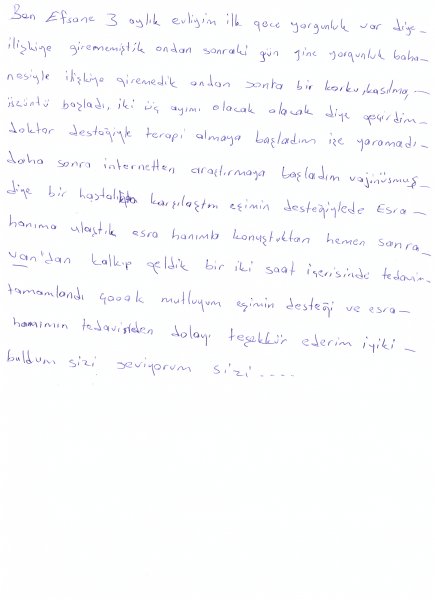 Ben Efsane 3 aylık evliyim ilk gece yorgunluk var diye-
ilişkiye girememiştik ondan sonraki gün yine yorgunluk baha-
nesiyle ilişkiye giremedik ondan sonra bir korku, kasılma, -
üzüntü başladı, iki üç ayımı olacak olacak diye geçirdim-
doktor desteğiyle terapi almaya başladım işe yaramadı-
daha sonra internetten araştırmaya başladım vajinüsmuş-
diye bir hastalıkla karşılaştım eşimin desteğiylede Esra-
hanıma ulaştık esra hanımla konuştuktan hemen sonra-
van'dan kalkıp geldik bir iki saat içerisinde tedavim-
tamamlandı çoook mutluyum eşimin desteği ve esra-
hanımın tedavisinden dolayı teşekkür ederim iyiki -
buldum sizi seviyorum sizi ....